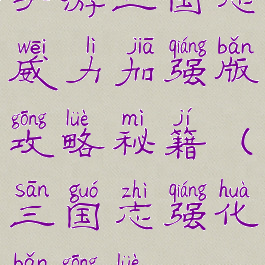 游三国志
wēi lì jiā qiáng bǎn
威力加强版
gōng lüè mì jí
攻略秘籍（
sān guó zhì qiáng huà
三国志强化
bǎn gōng lüè